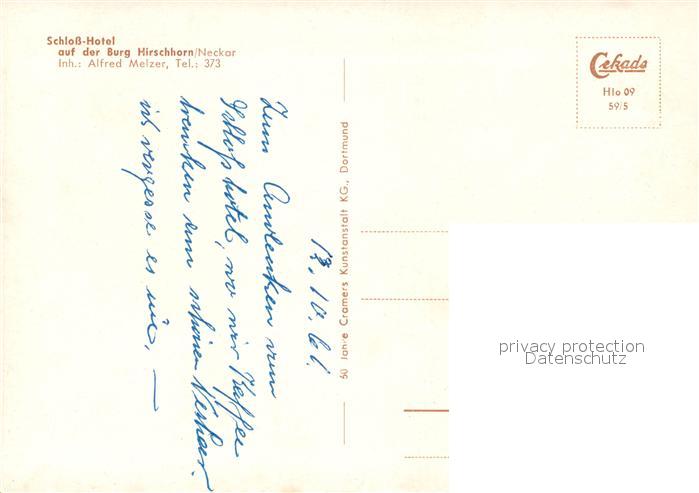 Schloß-Hotel
auf der Burg Hirschhorn/Neckar
Inh.: Alfred Melzer, Tel.: 373
Cekade
Hlo 09
59/5
50 Jahre Cramers Kunstanstalt KG., Dortmund
13.10.61.
Zum Andenken vom
Schloßhotel, wo wir Kaffee
tranken am schönen Neckar.
ich vergesse es nie. —
privacy protection
Datenschutz